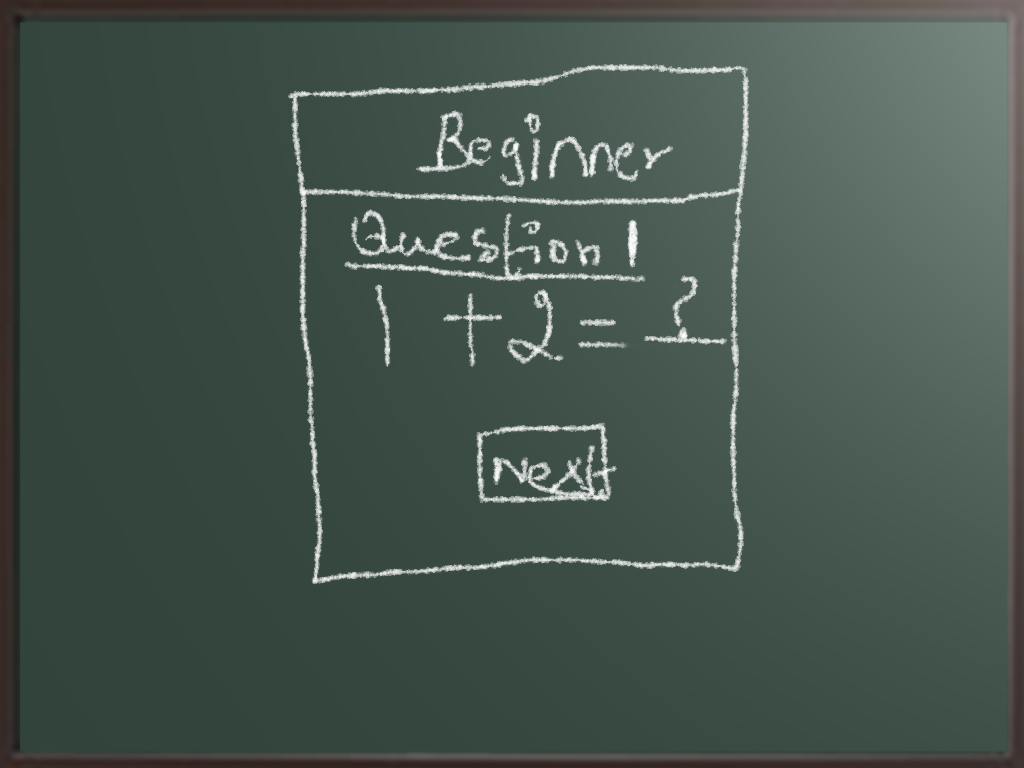 Beginner
Question 1
1 + 2 = ?
Next